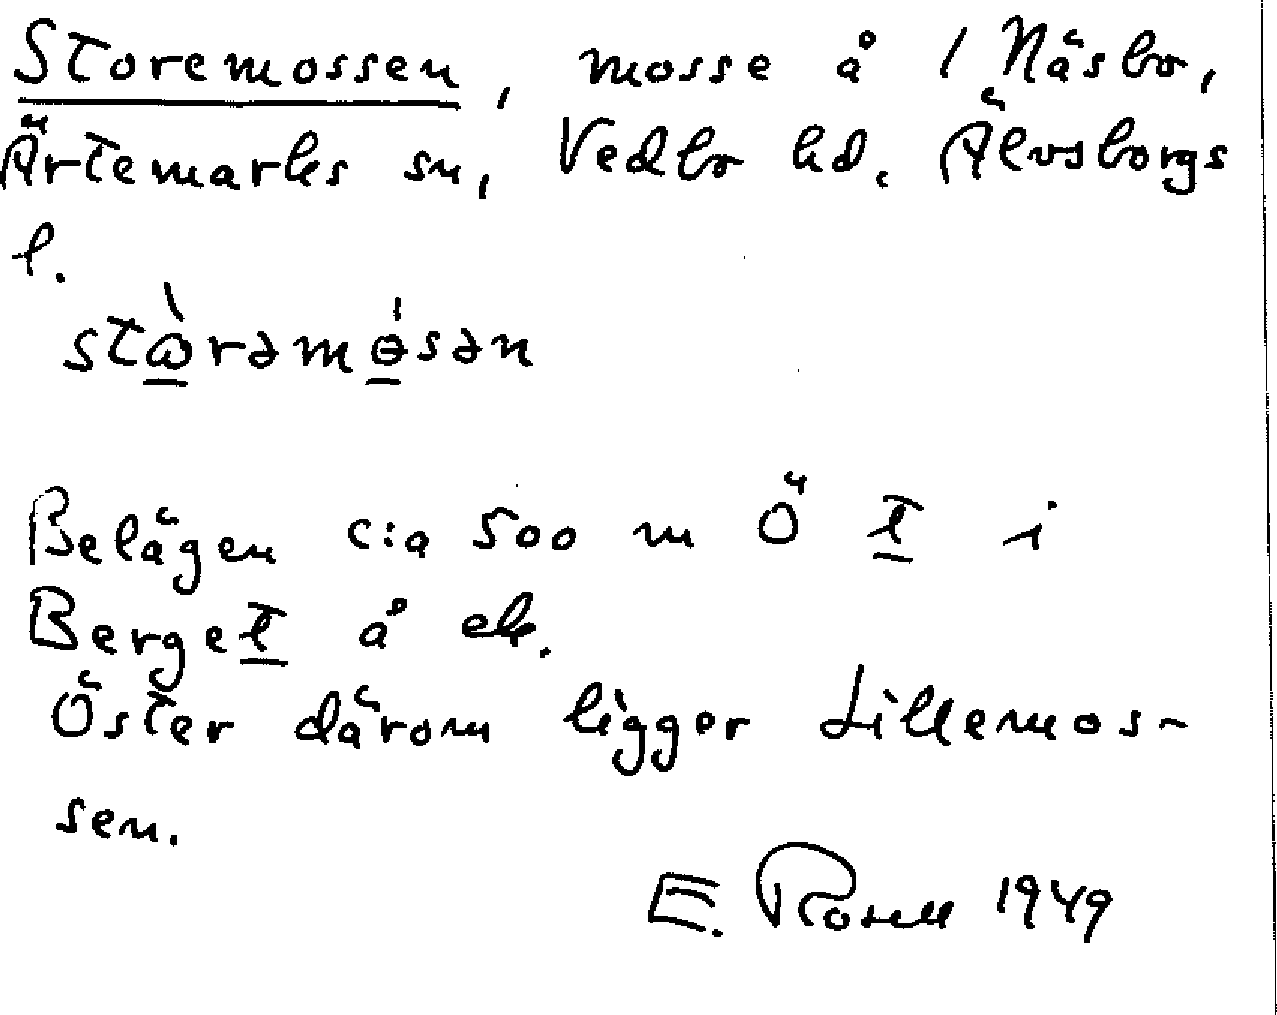 Storemossen, mosse å 1 Näsbo,
Ärtemarks sn, Vedbo hd. Älvsborgs
l.
stɷ̀rəmɵ́sən
Belägen c:a 500 m Ö t i
Berget å ek.
Öster därom ligger Lillemos-
sen.
E. Rosell 1949